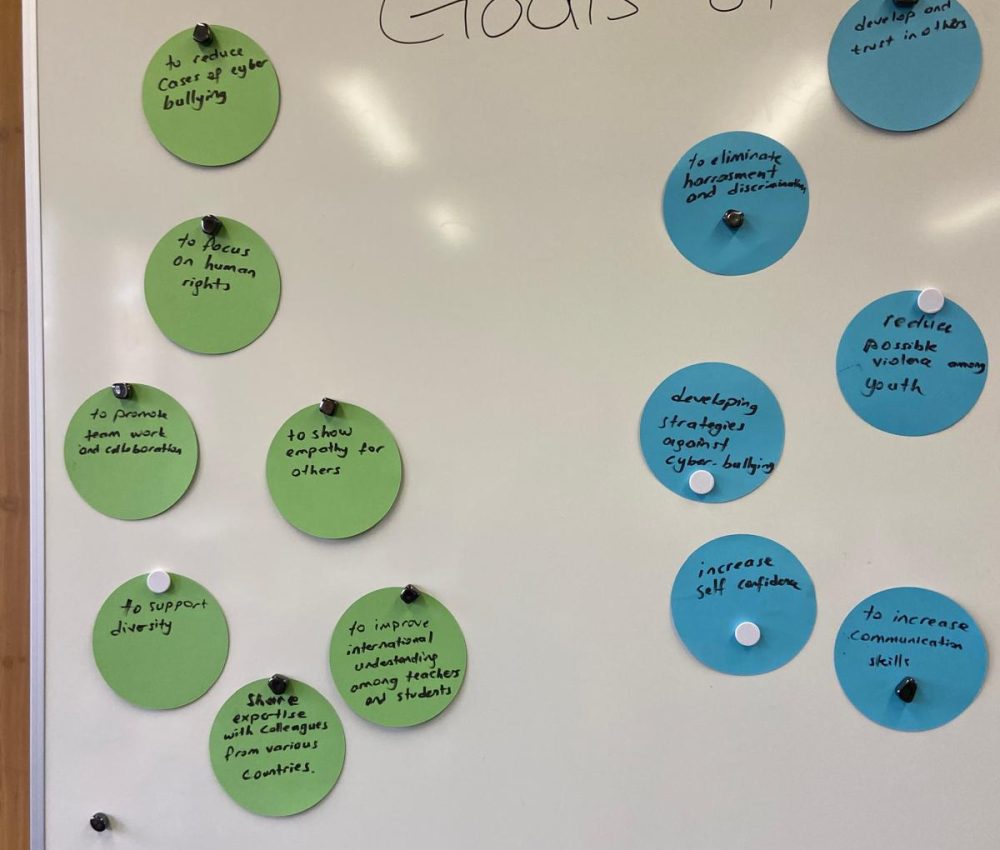 Goals of
to reduce
cases of cyber
bullying
to focus
on human
rights
to promote
team work
and collaboration
to show
empathy for
others
to support
diversity
to improve
international
understanding
among teachers
and students
Share
expertise
with colleagues
from various
countries.
develop and
trust in others
to eliminate
harrasment
and discrimination
reduce
possible
violence among
youth
developing
strategies
against
cyber-bullying
increase
self confidence
to increase
communication
skills